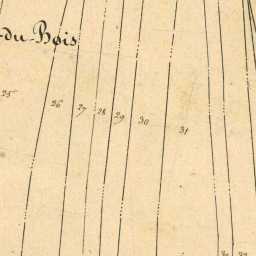 -du-Bois
25 26 27 28 29 30 31